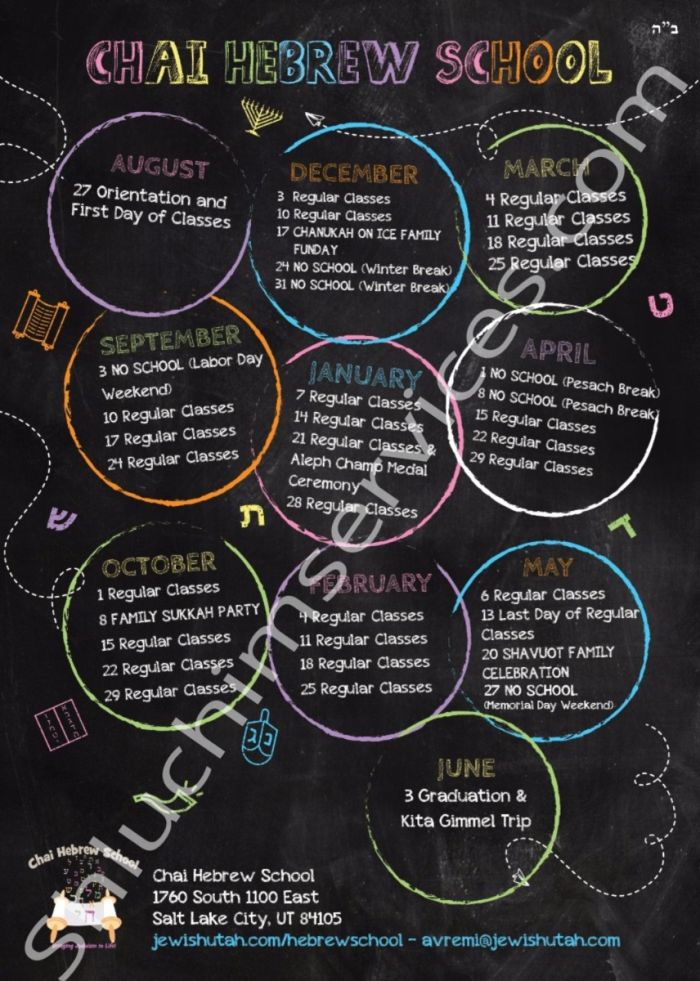 ב"ה
CHAI HEBREW SCHOOL
AUGUST
27 Orientation and
First Day of Classes
SEPTEMBER
3 NO SCHOOL (Labor Day
Weekend)
10 Regular Classes
17 Regular Classes
24 Regular Classes
OCTOBER
1 Regular Classes
8 FAMILY SUKKAH PARTY
15 Regular Classes
22 Regular Classes
29 Regular Classes
DECEMBER
3 Regular Classes
10 Regular Classes
17 CHANUKAH ON ICE FAMILY
FUNDAY
24 NO SCHOOL (Winter Break)
31 NO SCHOOL (Winter Break)
JANUARY
7 Regular Classes
14 Regular Classes
21 Regular Classes &
Aleph Champ Medal
Ceremony
28 Regular Classes
FEBRUARY
4 Regular Classes
11 Regular Classes
18 Regular Classes
25 Regular Classes
MARCH
4 Regular Classes
11 Regular Classes
18 Regular Classes
25 Regular Classes
APRIL
1 NO SCHOOL (Pesach Break)
8 NO SCHOOL (Pesach Break)
15 Regular Classes
22 Regular Classes
29 Regular Classes
MAY
6 Regular Classes
13 Last Day of Regular
Classes
20 SHAVUOT FAMILY
CELEBRATION
27 NO SCHOOL
(Memorial Day Weekend)
JUNE
3 Graduation &
Kita Gimmel Trip
ט
ש
ת
ד
נ ג
Chai Hebrew School
Bringing Judaism to Life!
Chai Hebrew School
1760 South 1100 East
Salt Lake City, UT 84105
jewishutah.com/hebrewschool - avremi@jewishutah.com
Shluchimservices.com